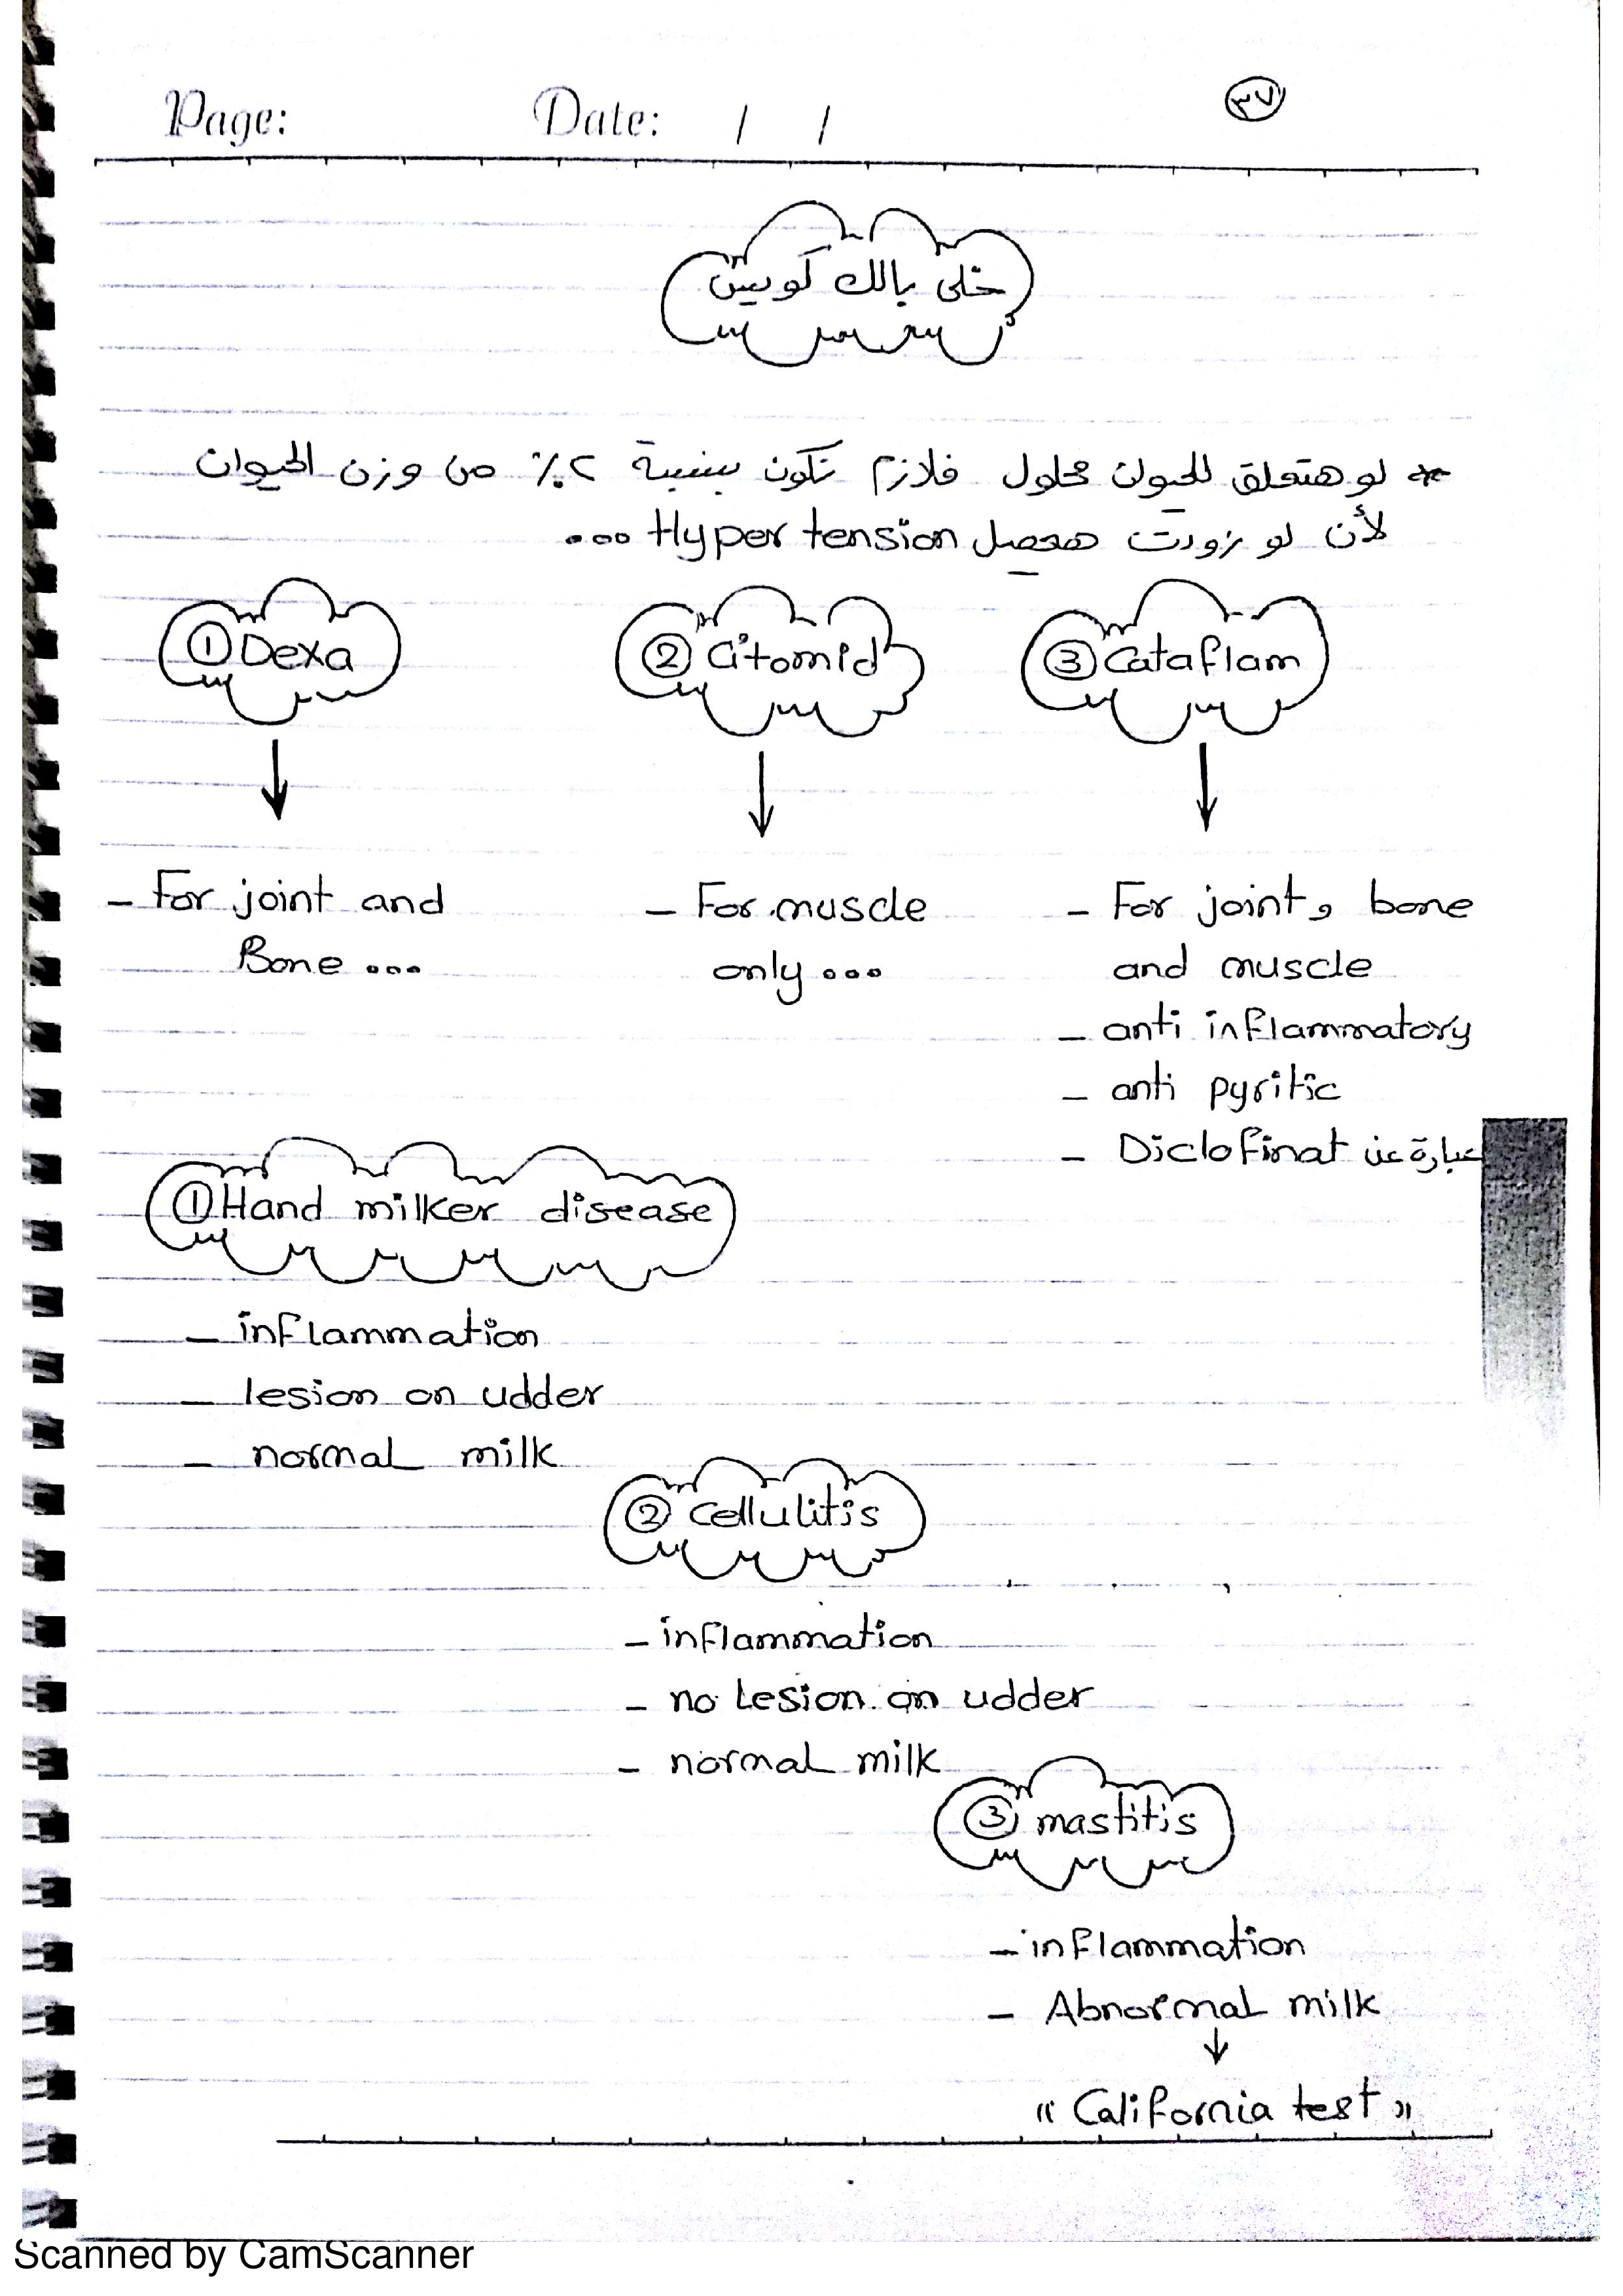 Page: Date: / /
٣٧
خلى بالك كويس
* لو هتعلق للحيوان محلول فلازم تكون بنسبة ٢٪ من وزن الحيوان
لأن لو زودت هيحصل Hyper tension ...
① Dexa
- For joint and
Bone ...
② Citomid
- For muscle
only ...
③ Cataflam
- For joint و bone
and muscle
- anti inflammatory
- anti pyritic
- Diclofinat عبارة عن
① Hand milker disease
- inflammation
- lesion on udder
- normal milk
② Cellulitis
- inflammation
- no lesion on udder
- normal milk
③ mastitis
- inflammation
- Abnormal milk
↓
"California test"
Scanned by CamScanner